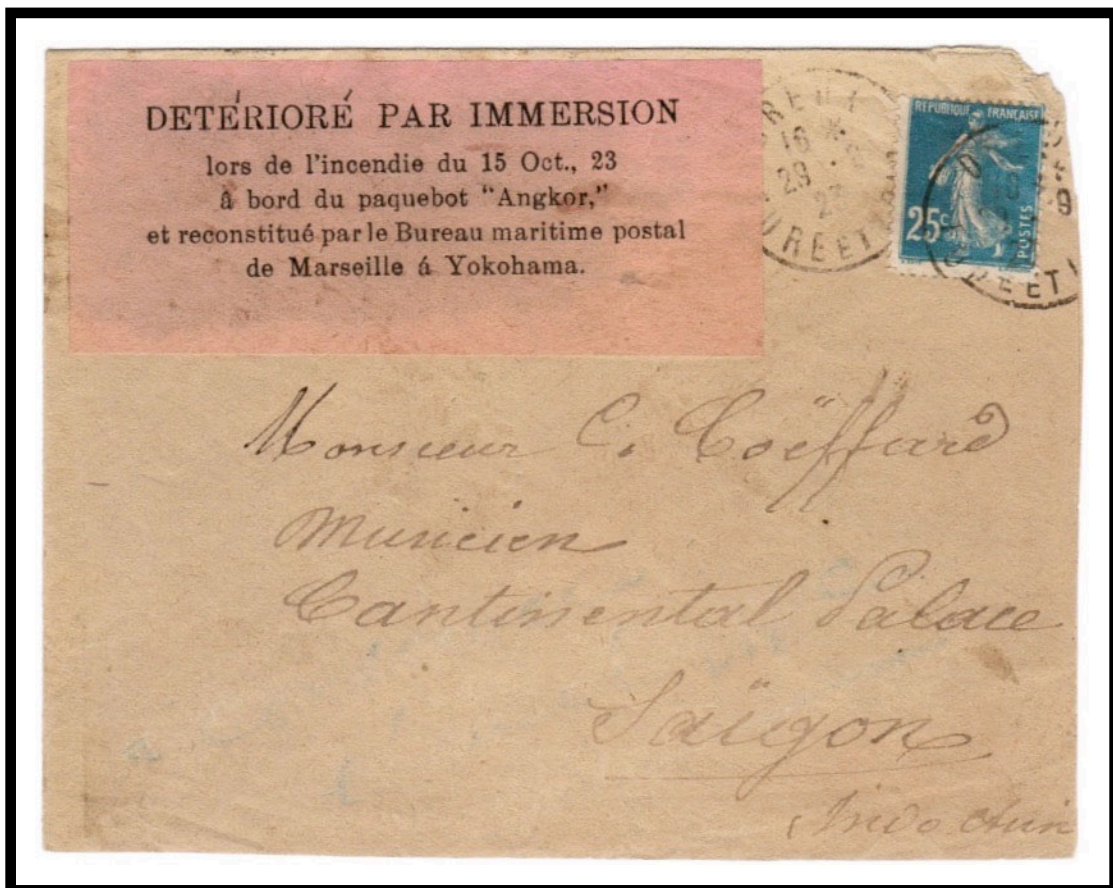 DETÉRIORÉ PAR IMMERSION
lors de l'incendie du 15 Oct., 23
á bord du paquebot "Angkor,"
et reconstitué par le Bureau maritime postal
de Marseille á Yokohama.
REPUBLIQUE FRANÇAISE
25c
POSTES
DREUX
16
29
23
EURE ET
EURE ET L
Monsieur C. Coëffard
Musicien
Cantinental Palace
Saïgon
Indo Chin